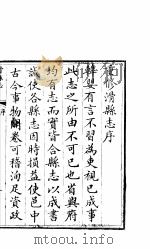 重修滑縣志序
諺有言不習為吏視已成事
此志之所由不可已也省與府
均有志而實會合縣志以成書
誠使各縣志因時損益使邑中
古今事物開卷可稽洵足資政